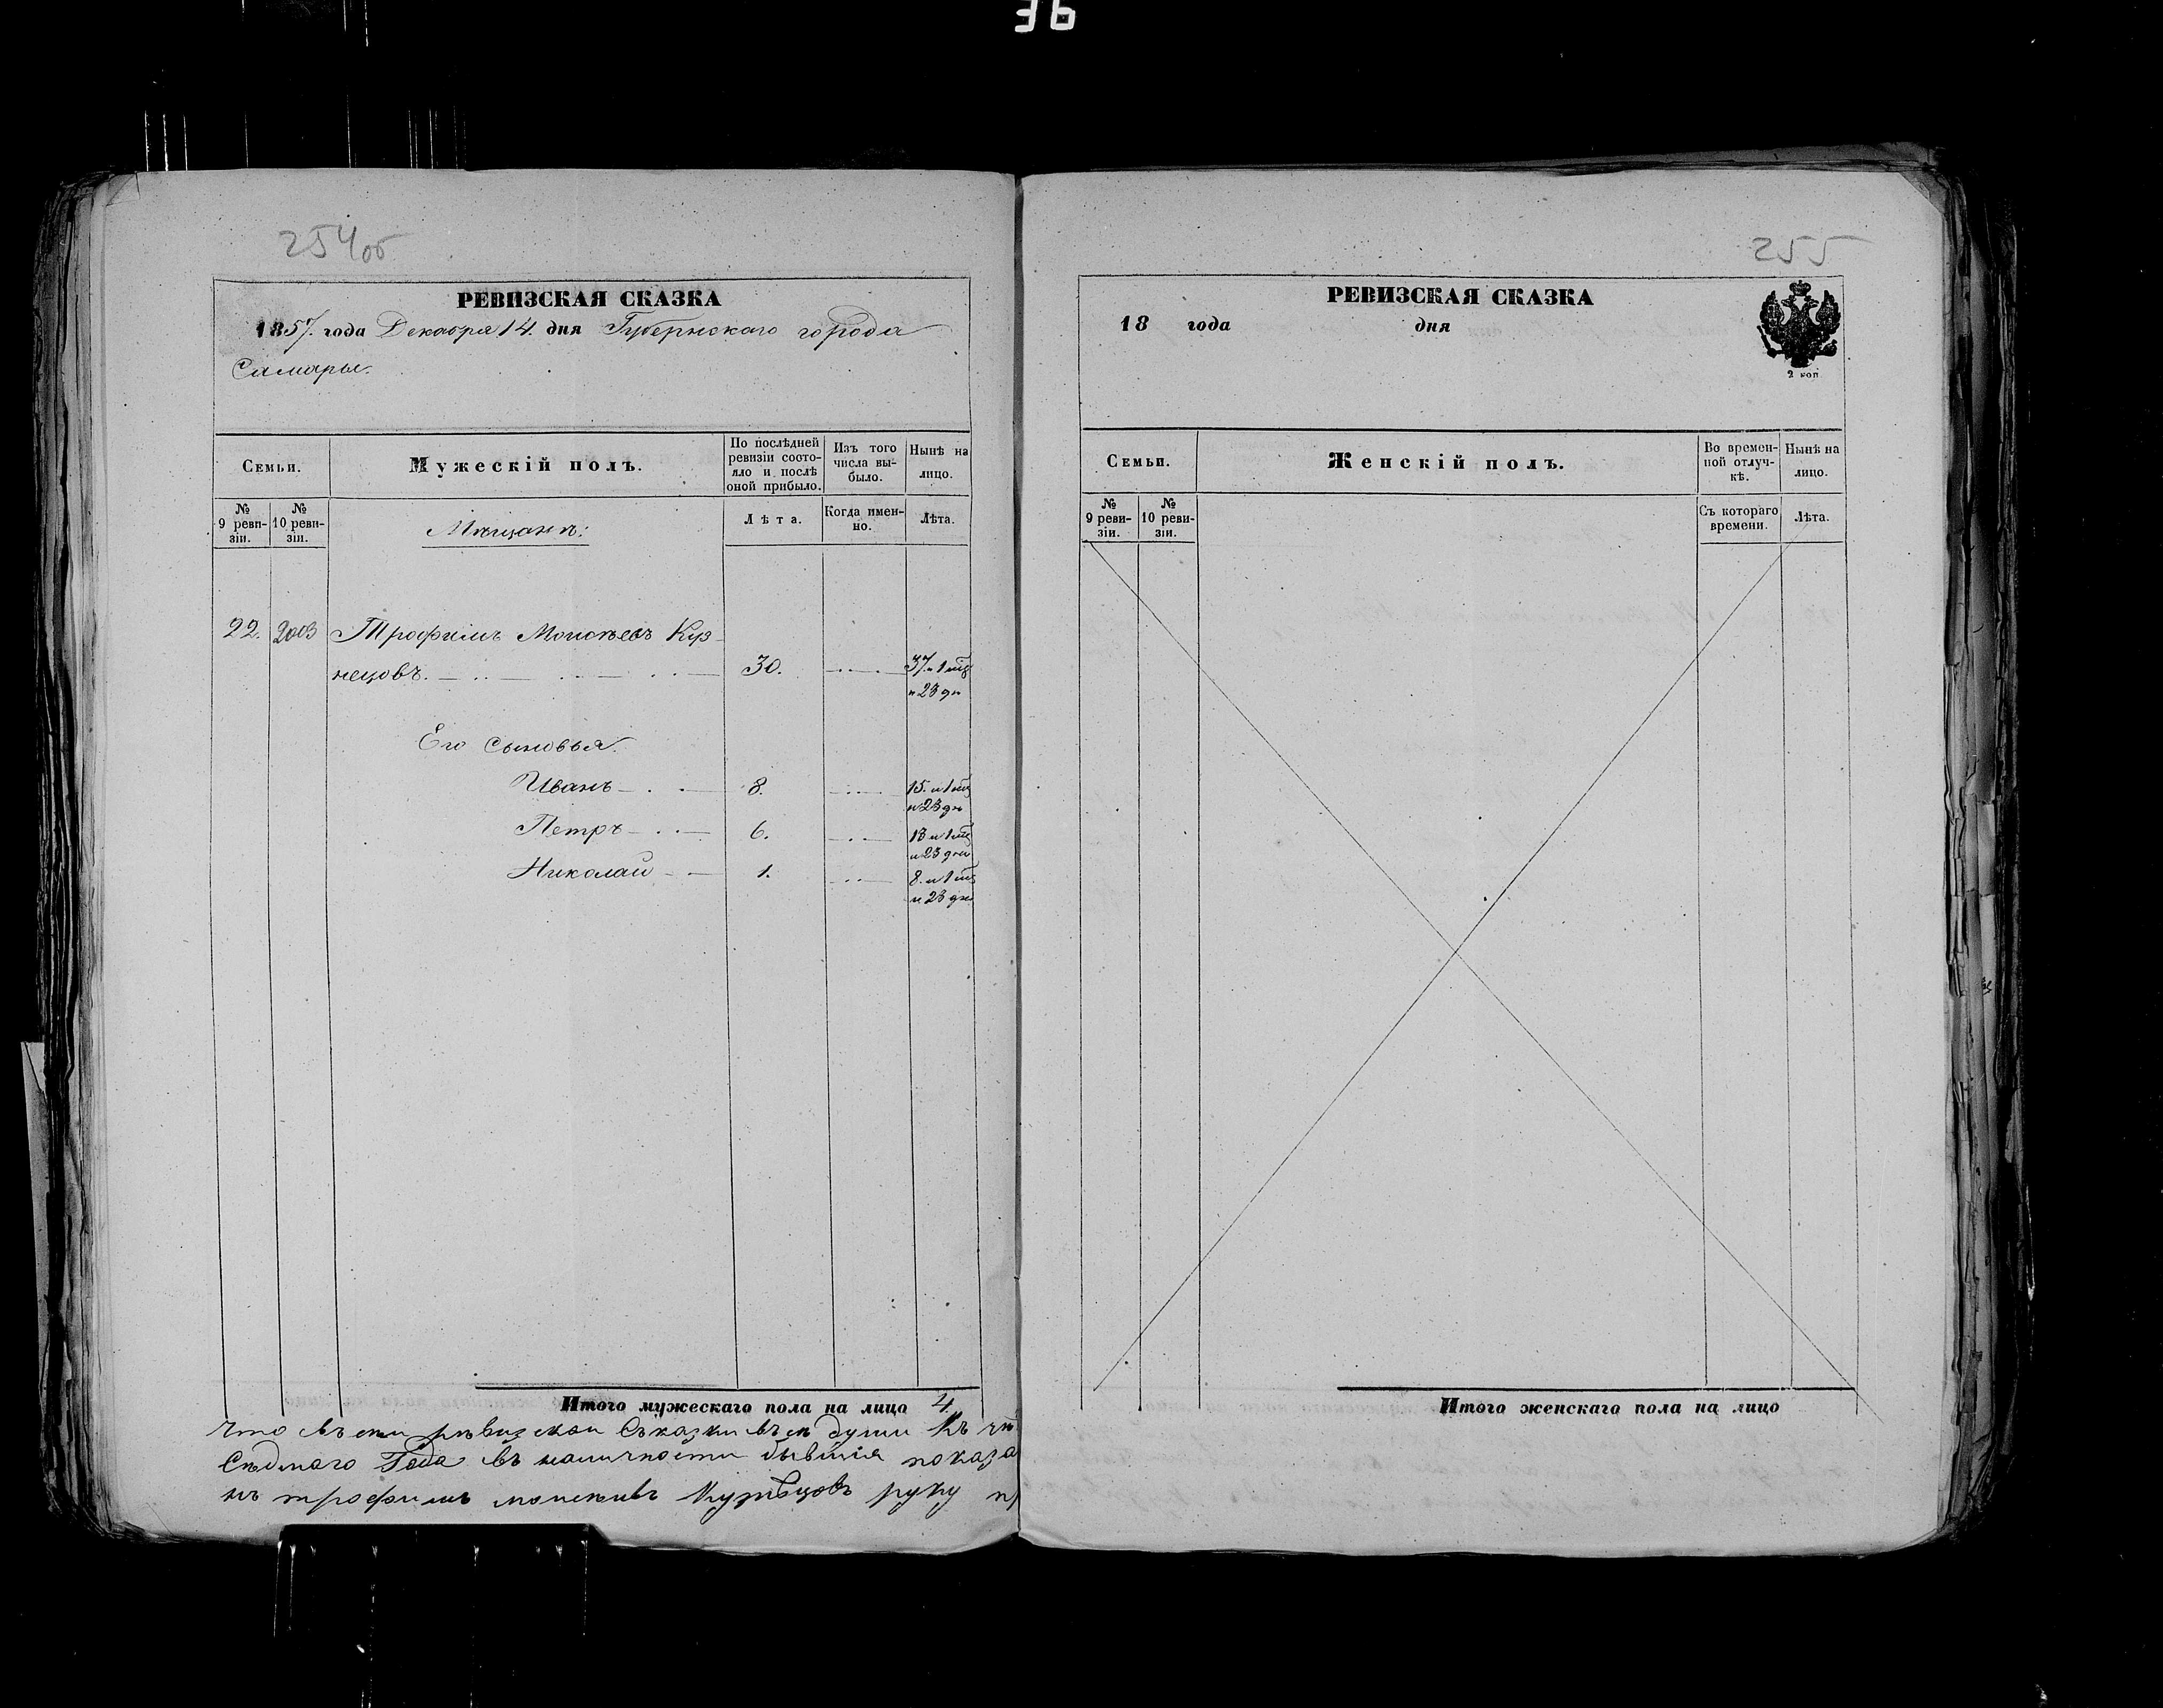 36
254об
РЕВИЗСКАЯ СКАЗКА
1857. года Декабря 14. дня Губернскаго города
Самары.
Семьи.
Мужескій полъ.
По послѣдней ревизіи состояло и послѣ оной прибыло.
Изъ того числа выбыло.
Нынѣ на лицо.
№ 9 ревизіи.
№ 10 ревизіи.
Мѣщанъ:
Лѣта.
Когда именно.
Лѣта.
22. 2003 Трофимъ Моисѣевъ Куз-
нецовъ. 30. 37. и 1 мѣс
и 23 дн
Его сыновья.
Иванъ 8. 15. и 1 мѣс
и 23 дн
Петръ 6. 13 и 1 мѣс
и 23 дни
Николай 1. 8. и 1 мѣс
и 23 дн
Итого мужескаго пола на лицо 4.
что въ сѣи рѣвизскои съказки въсѣ души Къ
Сѣдмаго Года въ наличности бывшія показа
нъ трофимъ моисѣивъ Кузнѣцовъ руку п
255
РЕВИЗСКАЯ СКАЗКА
18 года дня
2 коп
Семьи.
Женскій полъ.
Во временной отлучкѣ.
Нынѣ на лицо.
№ 9 ревизіи.
№ 10 ревизіи.
Съ котораго времени.
Лѣта.
Итого женскаго пола на лицо